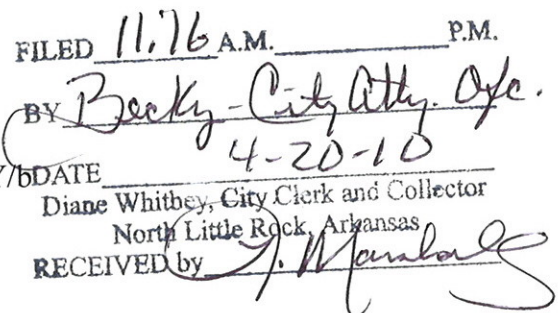 FILED 11:16 A.M. P.M.
BY Becky - City Atty. Ofc.
/bDATE 4-20-10
Diane Whitbey, City Clerk and Collector
North Little Rock, Arkansas
RECEIVED by J. Marshall